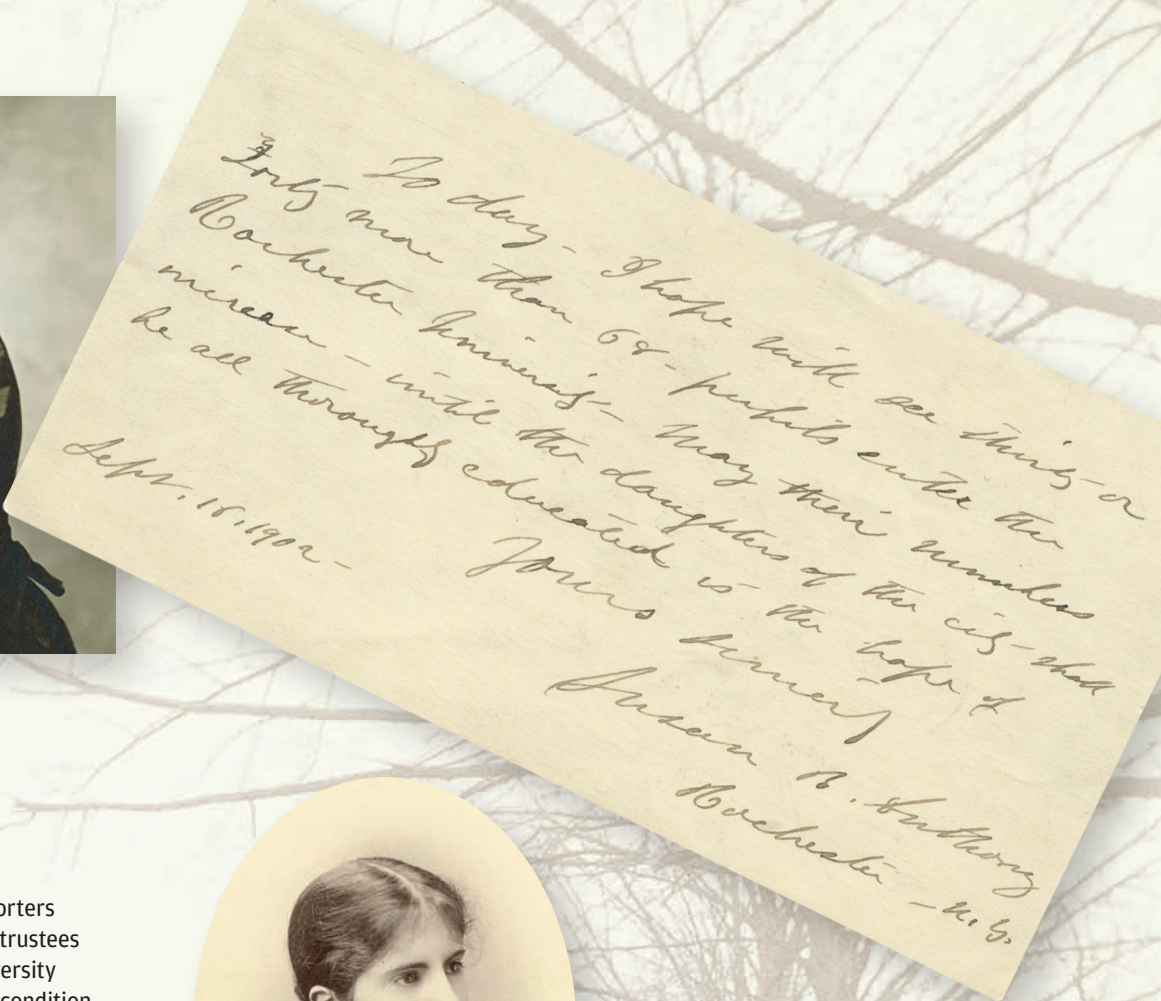 To day - I hope will see thirty - or
Forty more than 68 - pupils enter the
Rochester University - May their numbers
increase - until the daughters of the city - shall
be all thoroughly educated is the hope of
Yours sincerely
Sept. 1902 -
Susan B. Anthony
Rochester - N.Y.
orters
trustees
ersity
condition